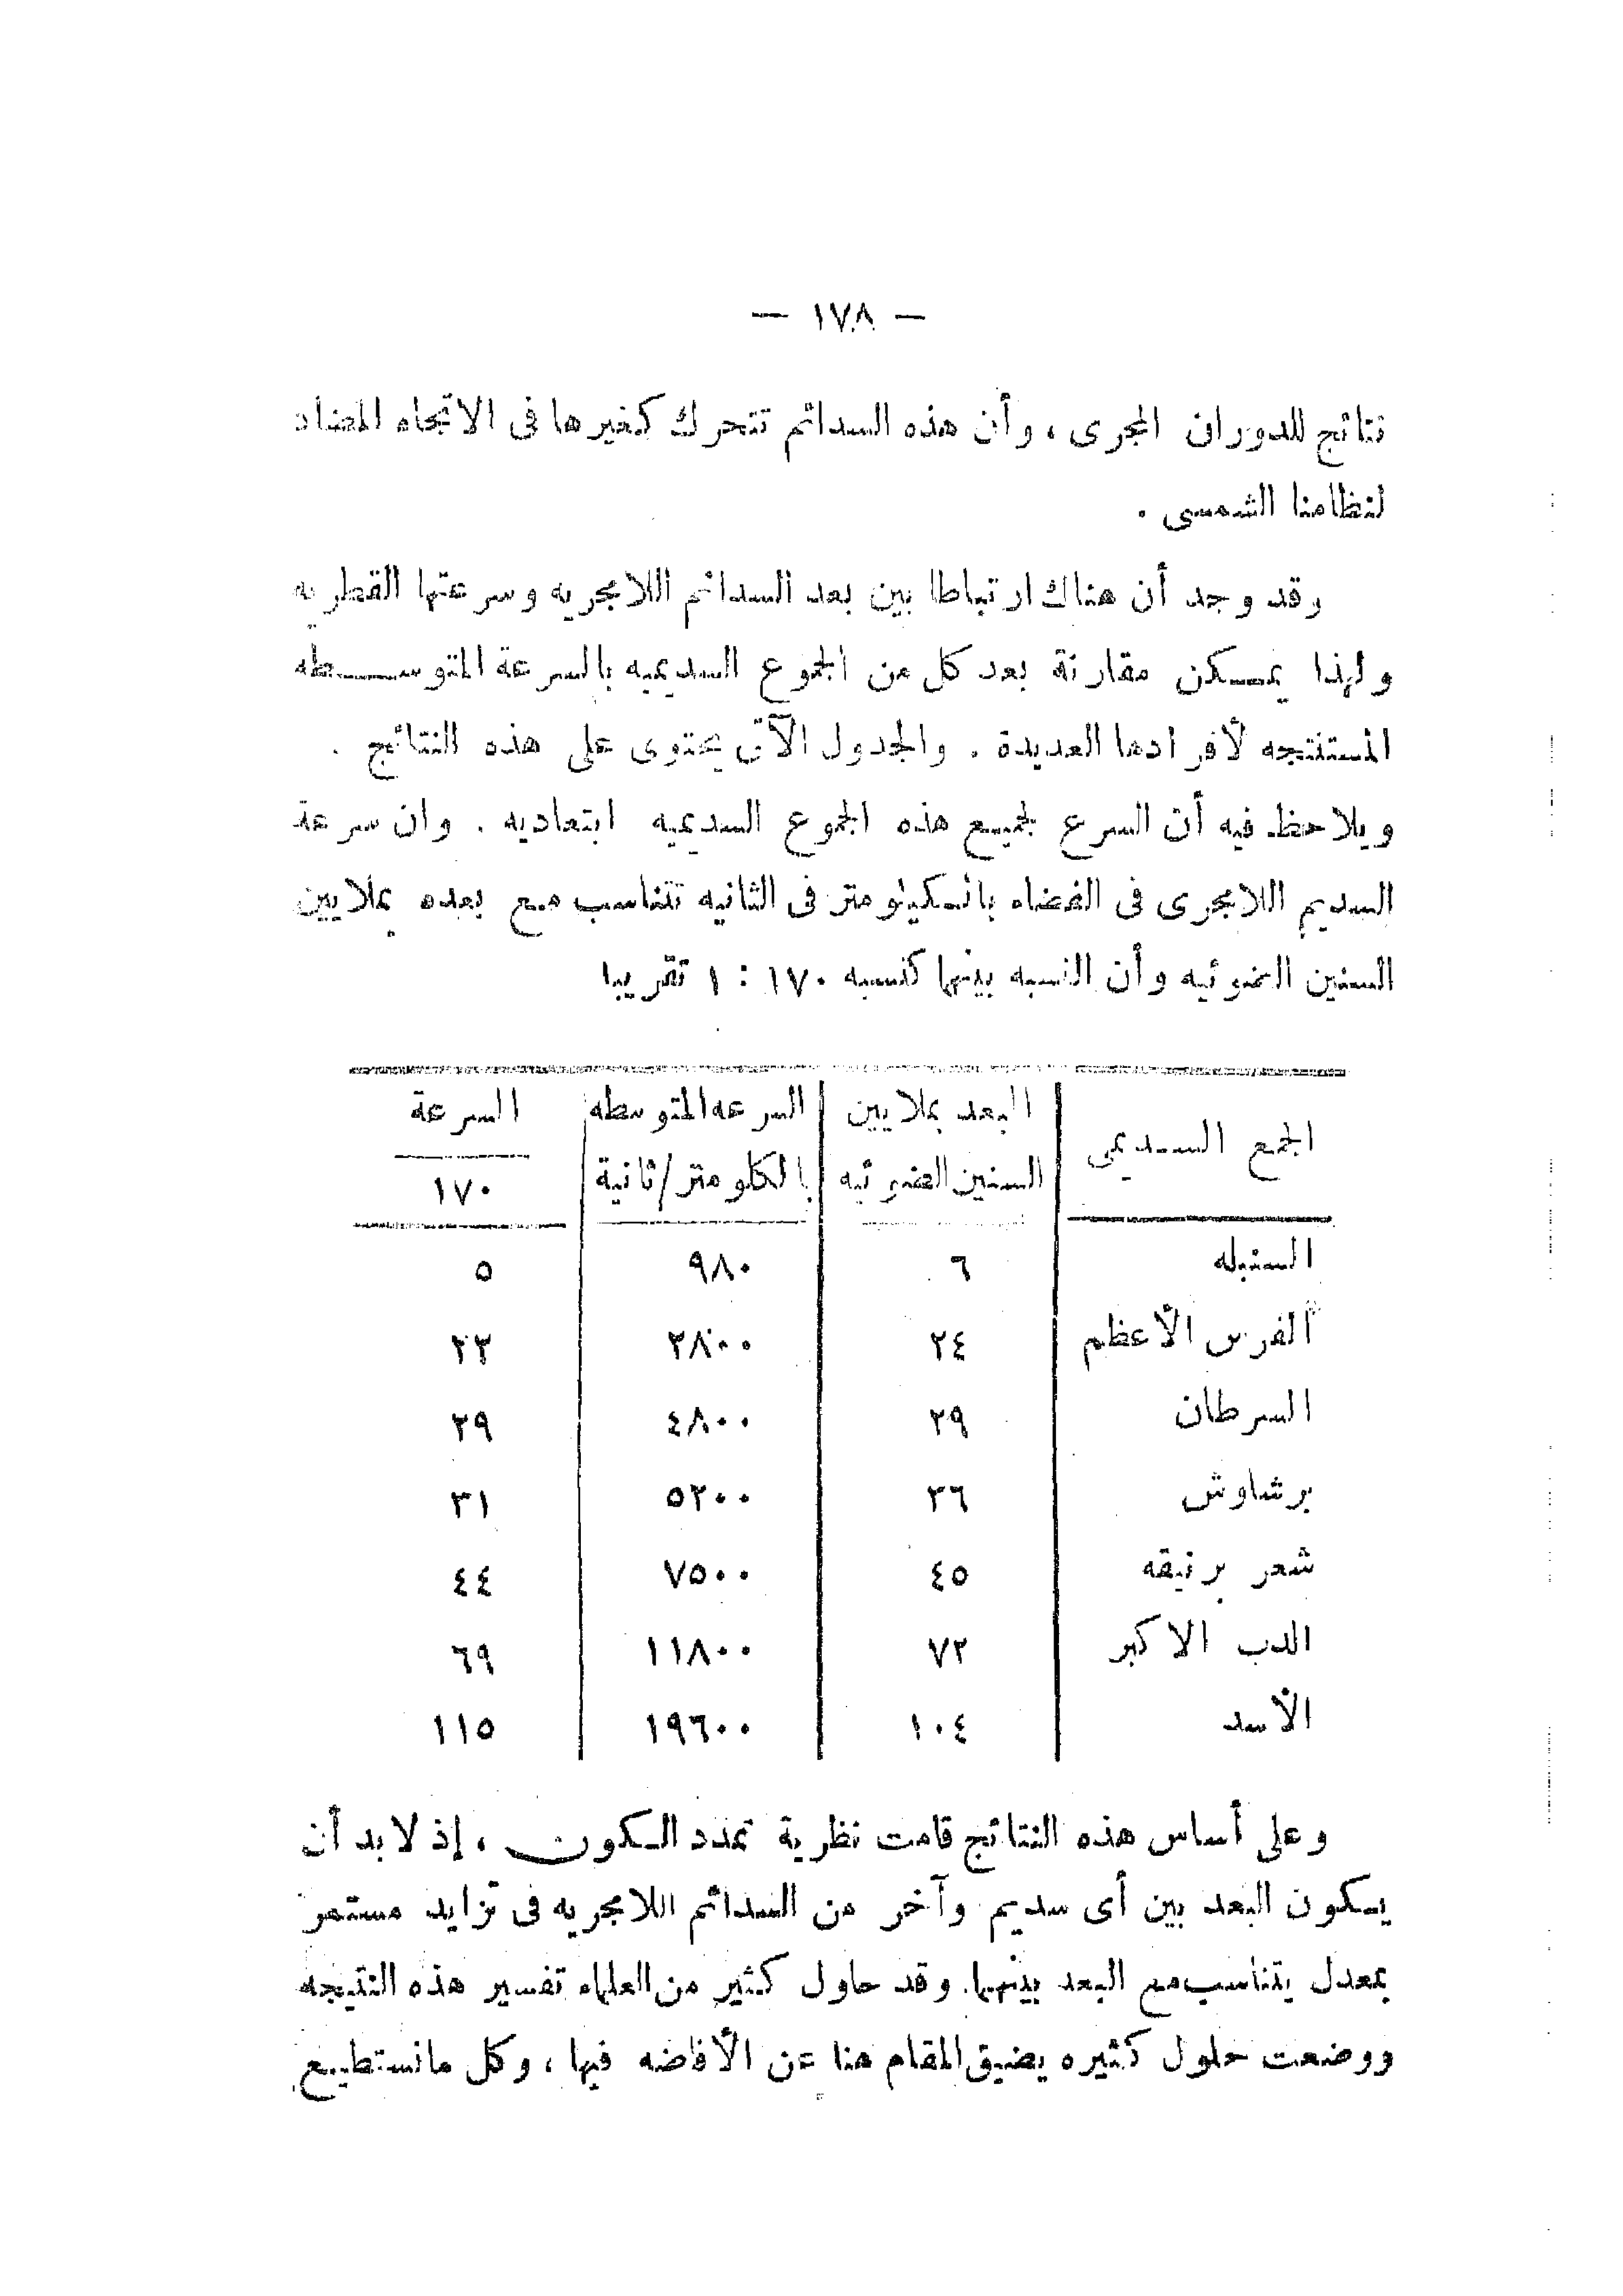 — ١٧٨ —
نتائج للدوران المجرى ، وأن هذه السدائم تتحرك كغيرها فى الاتجاه المضاد
لنظامنا الشمسى .
وقد وجد أن هناك ارتباطا بين بعد السدائم اللامجريه وسرعتها القطريه
ولهذا يمكن مقارنة بعد كل من الجموع السديميه بالسرعة المتوسطه
المستنتجه لأفرادها العديدة . والجدول الآتى يحتوى على هذه النتائج .
ويلاحظ فيه أن السرع لجميع هذه الجموع السديميه ابتعاديه . وان سرعة
السديم اللامجرى فى الفضاء بالكيلومتر فى الثانيه تتناسب مع بعده بملايين
السنين الضوئيه وأن النسبه بينهما كنسبه ١٧٠ : ١ تقريبا
الجمع السديمى | البعد بملايين السنين الضوئيه | السرعه المتوسطه بالكلومتر/ثانية | السرعة / ١٧٠
السنبله ٦ ٩٨٠ ٥
الفرس الأعظم ٢٤ ٣٨٠٠ ٢٣
السرطان ٢٩ ٤٨٠٠ ٢٩
برشاوش ٣٦ ٥٢٠٠ ٣١
شعر برنيقه ٤٥ ٧٥٠٠ ٤٤
الدب الاكبر ٧٢ ١١٨٠٠ ٦٩
الأسد ١٠٤ ١٩٦٠٠ ١١٥
وعلى أساس هذه النتائج قامت نظرية تمدد الكون ، إذ لابد أن
يكون البعد بين أى سديم وآخر من السدائم اللامجريه فى تزايد مستمر
بمعدل يتناسب مع البعد بينهما. وقد حاول كثير من العلماء تفسير هذه النتيجه
ووضعت حلول كثيره يضيق المقام هنا عن الأفاضه فيها ، وكل مانستطيع